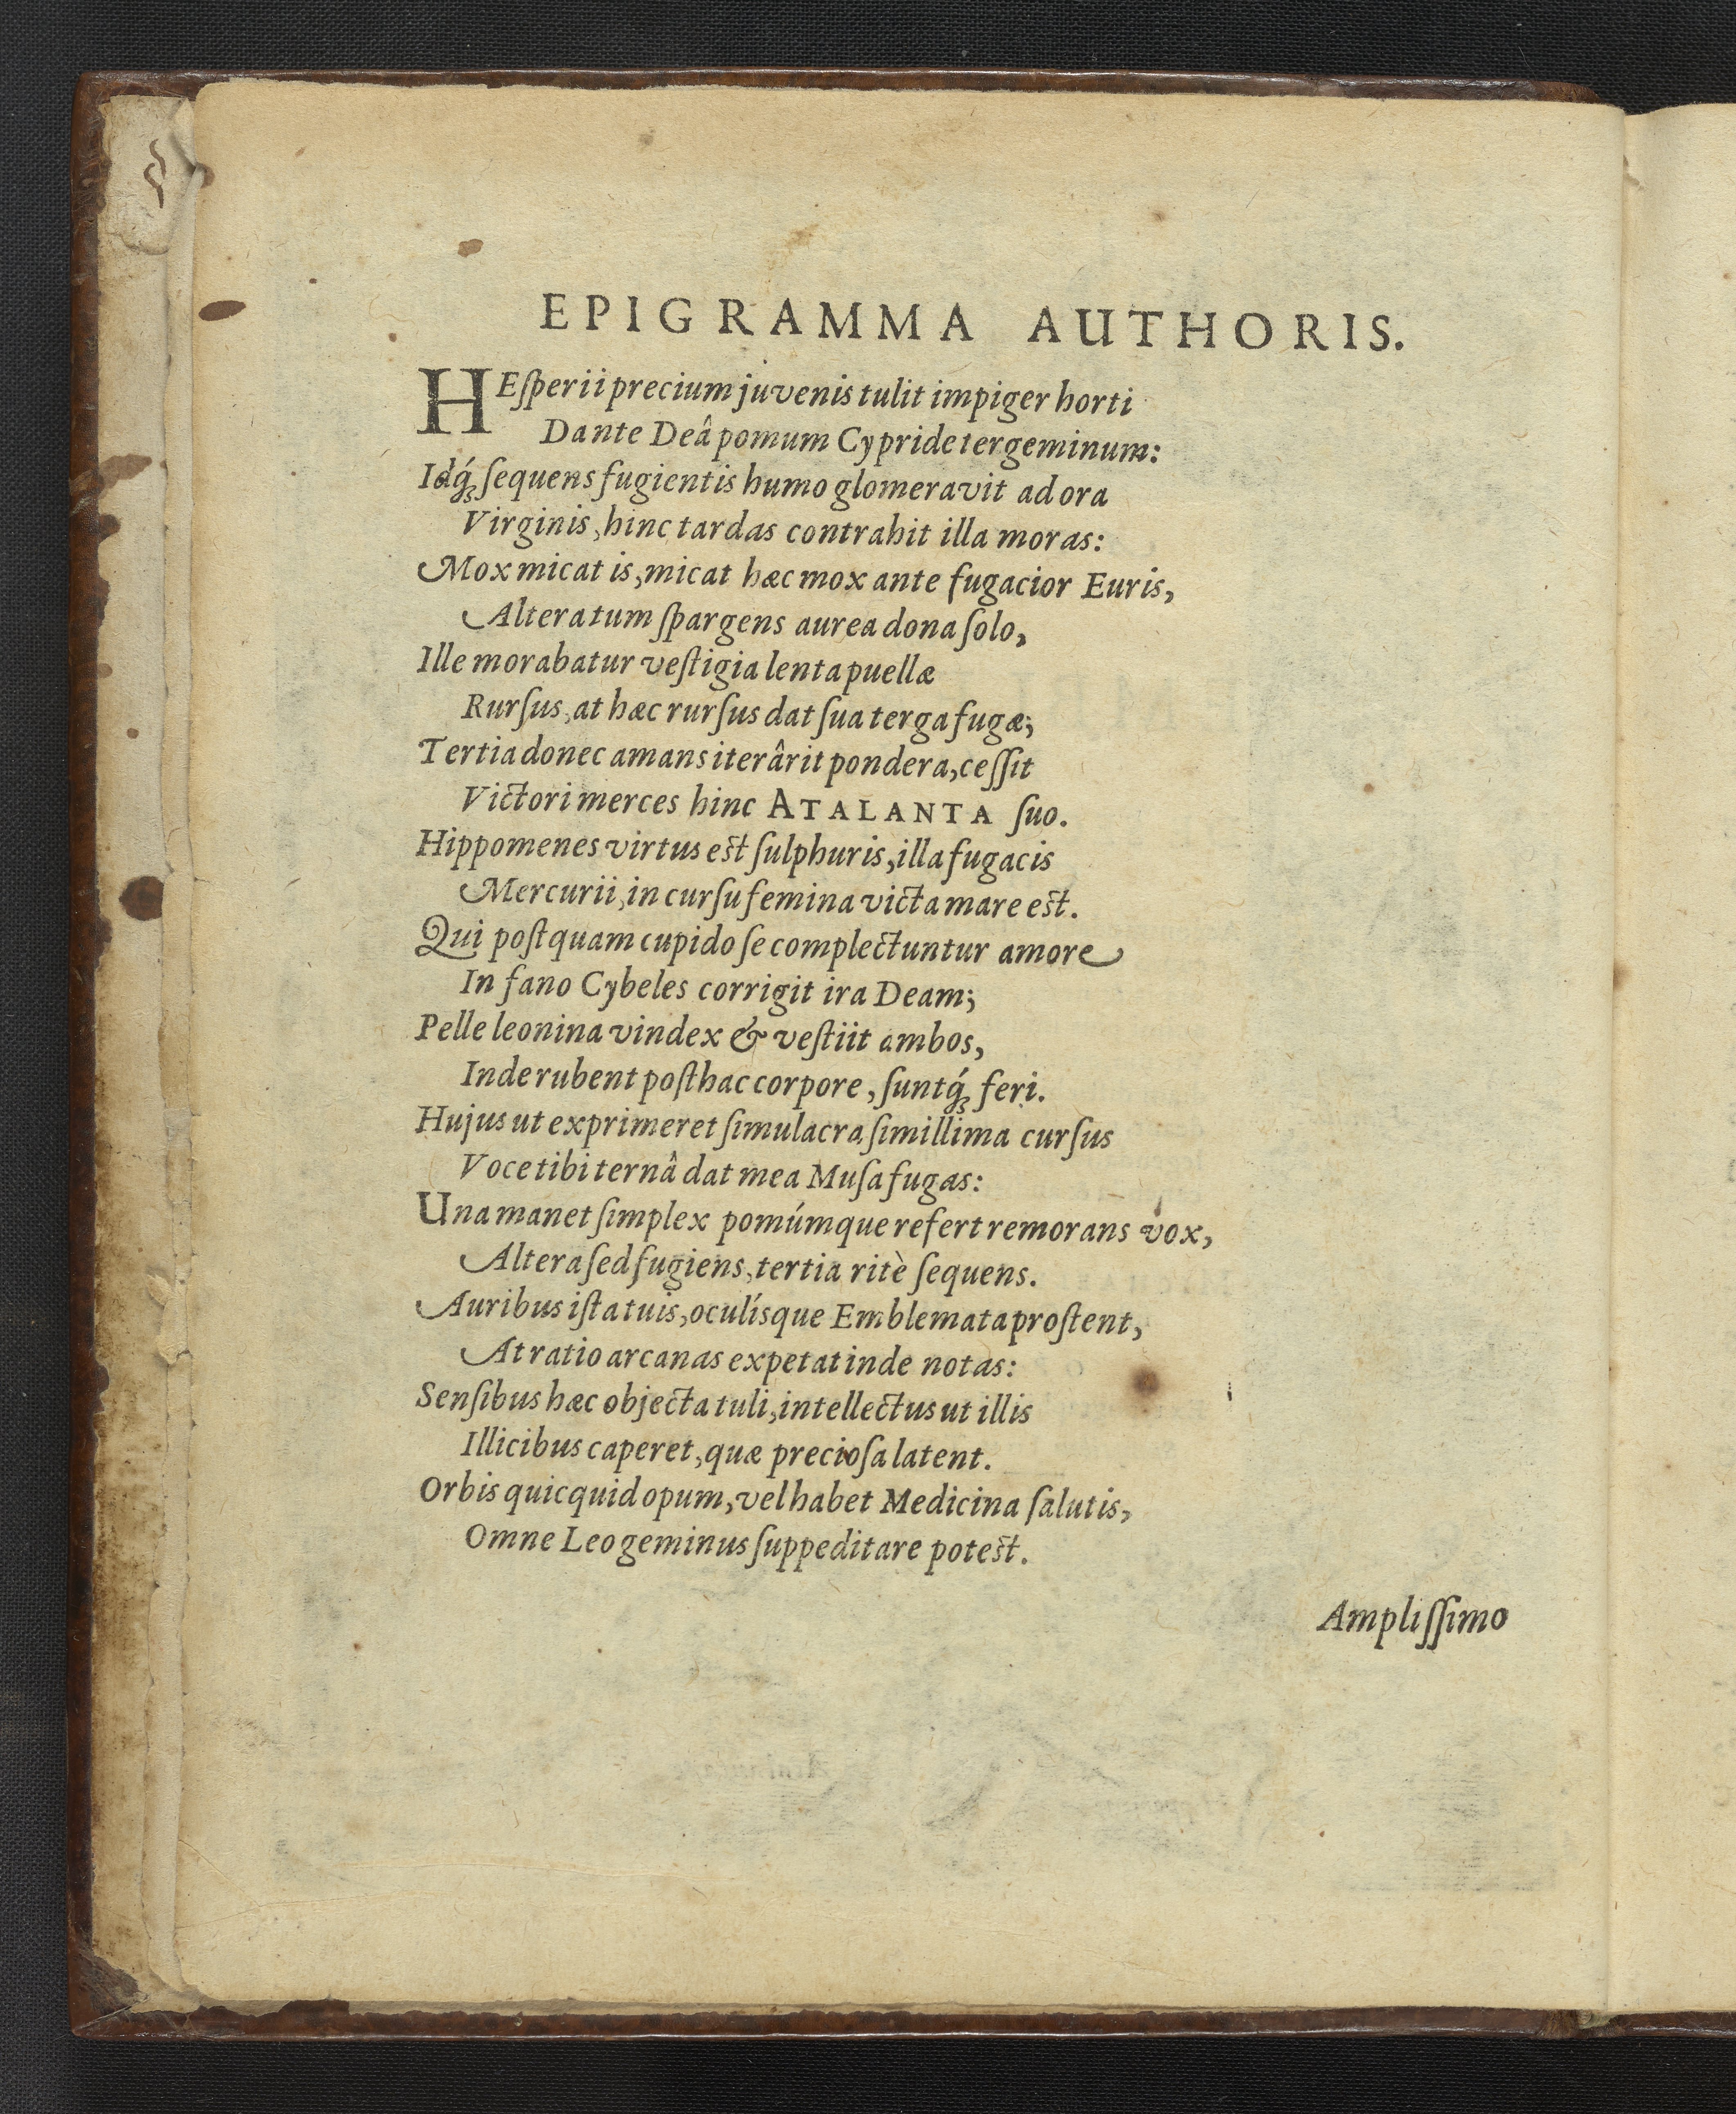 EPIGRAMMA AUTHORIS.
HEſperii precium juvenis tulit impiger horti
Dante Deâ pomum Cypride tergeminum:
Idq́ꝫ ſequens fugientis humo glomeravit ad ora
Virginis, hinc tardas contrahit illa moras:
Mox micat is, micat hæc mox ante fugacior Euris,
Altera tum ſpargens aurea dona ſolo,
Ille morabatur veſtigia lenta puellæ
Rurſus, at hæc rurſus dat ſua terga fugæ;
Tertia donec amans iterârit pondera, ceſſit
Victori merces hinc ATALANTA ſuo.
Hippomenes virtus eſt ſulphuris, illa fugacis
Mercurii, in curſu femina victa mare eſt.
Qui poſtquam cupido ſe complectuntur amore
In fano Cybeles corrigit ira Deam;
Pelle leonina vindex & veſtiit ambos,
Inde rubent poſthac corpore, ſuntq́ꝫ feri.
Hujus ut exprimeret ſimulacra ſimillima curſus
Voce tibi ternâ dat mea Muſa fugas:
Una manet ſimplex pomúmque refert remorans vox,
Altera ſed fugiens, tertia ritè ſequens.
Auribus iſta tuis, oculísque Emblemata proſtent,
At ratio arcanas expetat inde notas:
Senſibus hæc objecta tuli, intellectus ut illis
Illicibus caperet, quæ precioſa latent.
Orbis quicquid opum, vel habet Medicina ſalutis,
Omne Leo geminus ſuppeditare poteſt.
Ampliſſimo